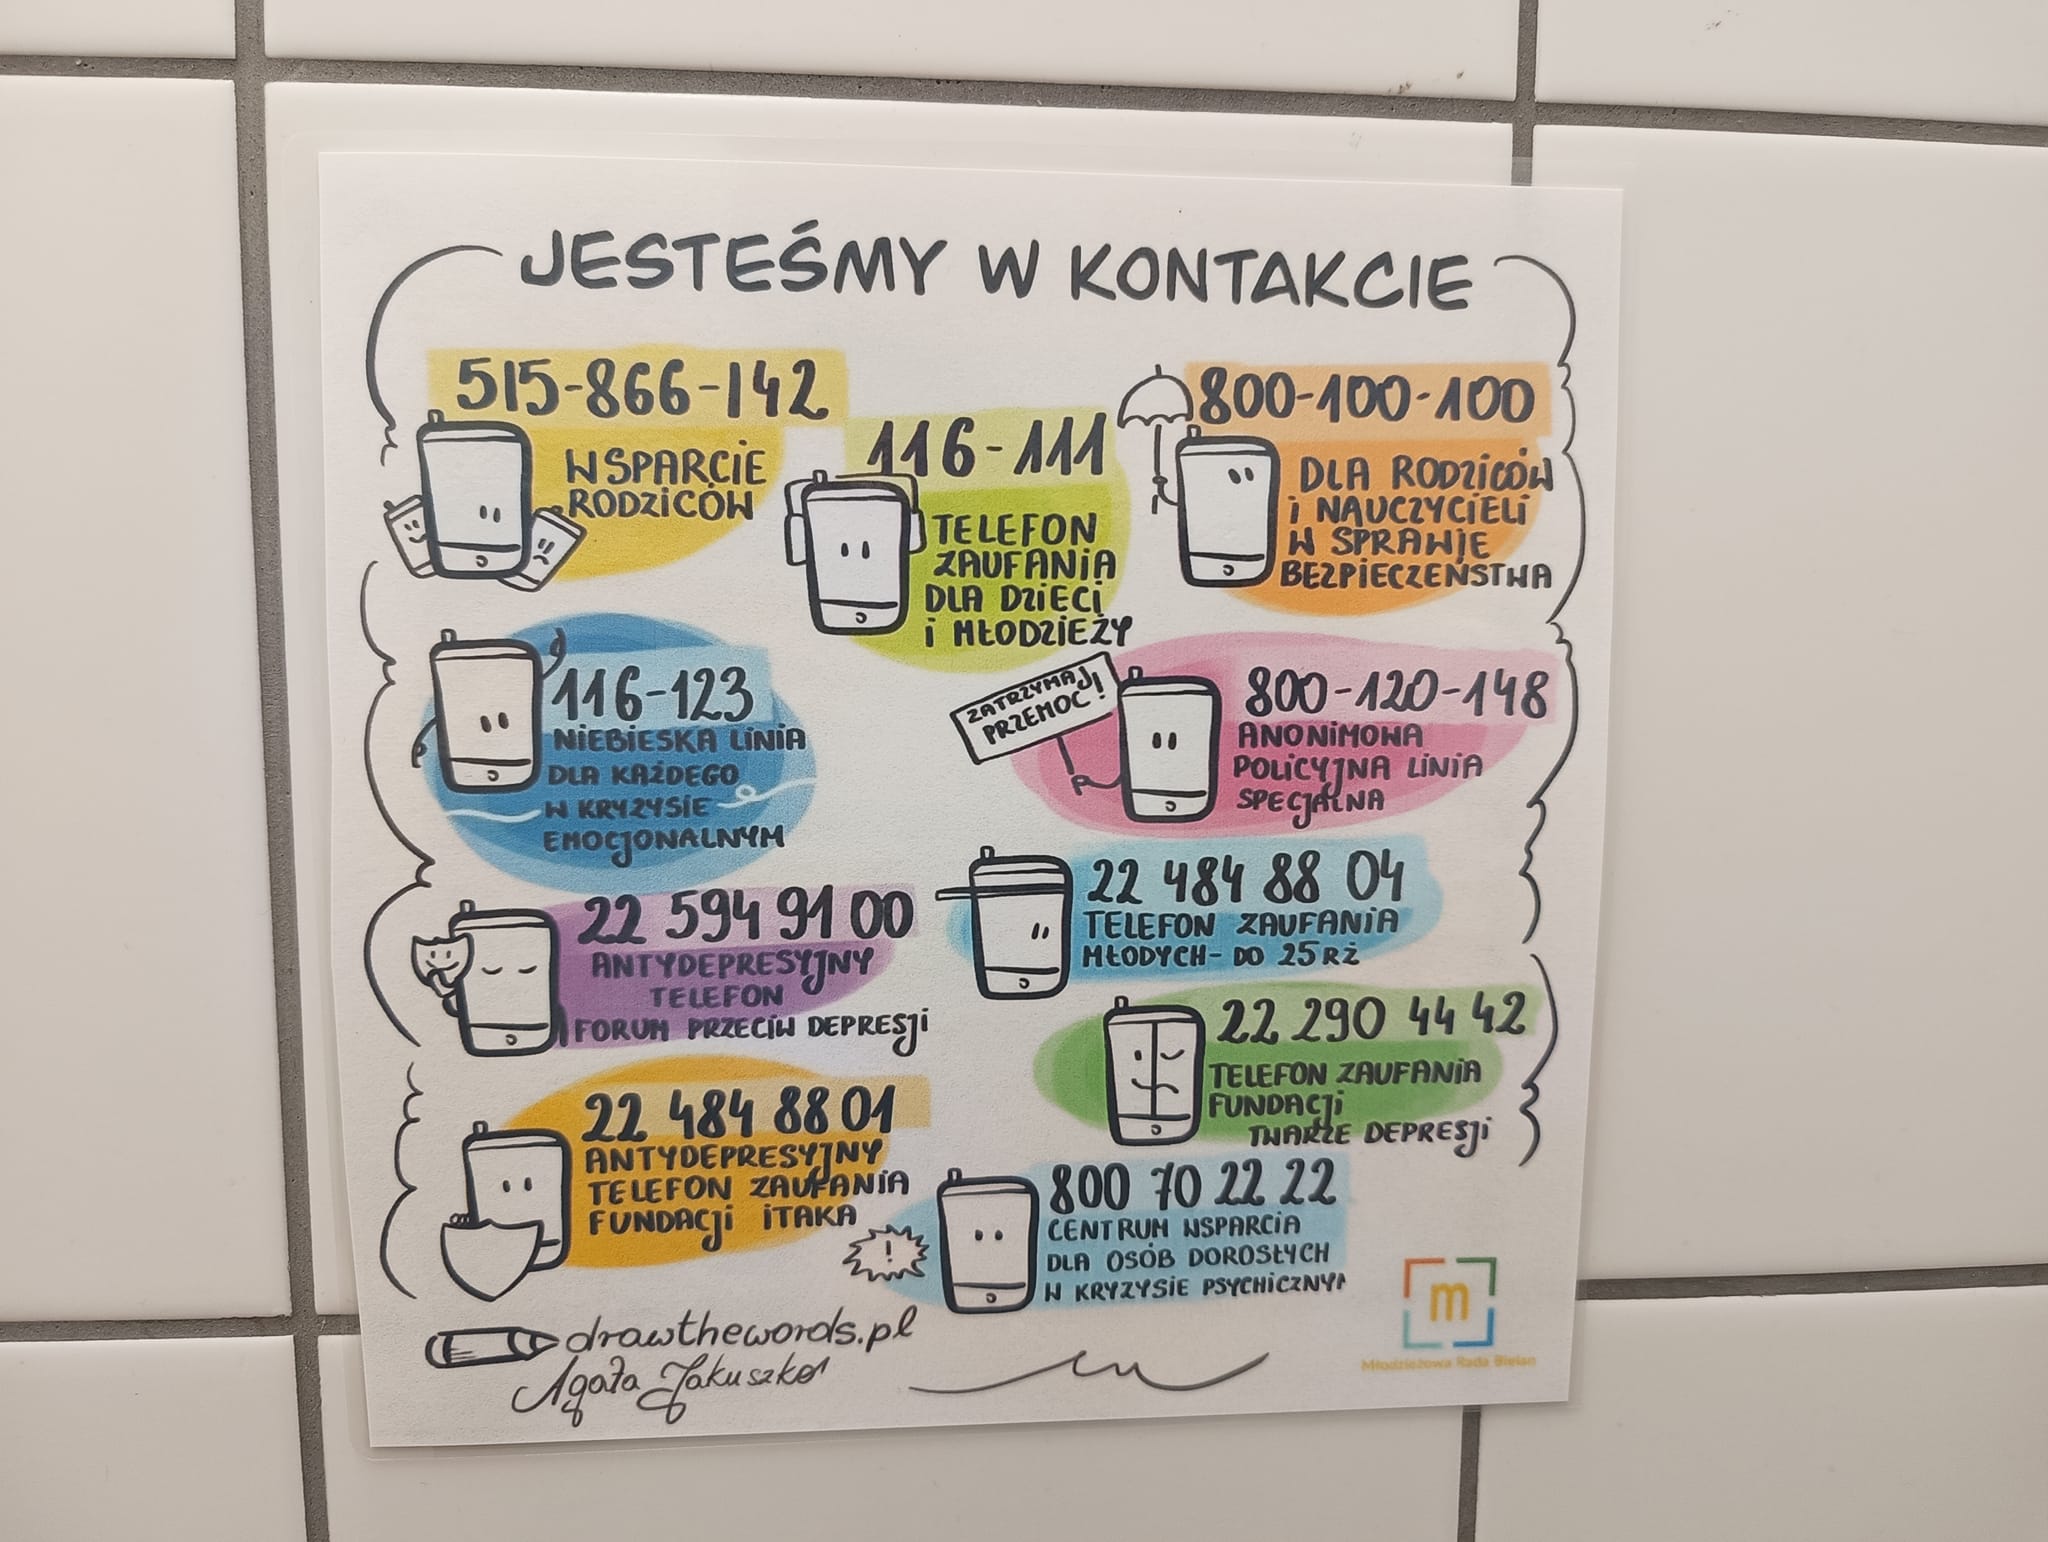 JESTEŚMY W KONTAKCIE
515-866-142
WSPARCIE
RODZICÓW
116-111
TELEFON
ZAUFANIA
DLA DZIECI
i MŁODZIEŻY
800-100-100
DLA RODZICÓW
i NAUCZYCIELI
W SPRAWIE
BEZPIECZEŃSTWA
116-123
NIEBIESKA LINIA
DLA KAŻDEGO
W KRYZYSIE
EMOCJONALNYM
ZATRZYMAJ
PRZEMOC!
800-120-148
ANONIMOWA
POLICYJNA LINIA
SPECJALNA
22 594 91 00
ANTYDEPRESYJNY
TELEFON
FORUM PRZECIW DEPRESJI
22 484 88 04
TELEFON ZAUFANIA
MŁODYCH- DO 25RŻ
22 290 44 42
TELEFON ZAUFANIA
FUNDACJI
TWARZE DEPRESJI
22 484 88 01
ANTYDEPRESYJNY
TELEFON ZAUFANIA
FUNDACJI ITAKA
!
800 70 22 22
CENTRUM WSPARCIA
DLA OSÓB DOROSŁYCH
W KRYZYSIE PSYCHICZNYM
drawthewords.pl
Agata Jakuszko
m
Młodzieżowa Rada Bielan